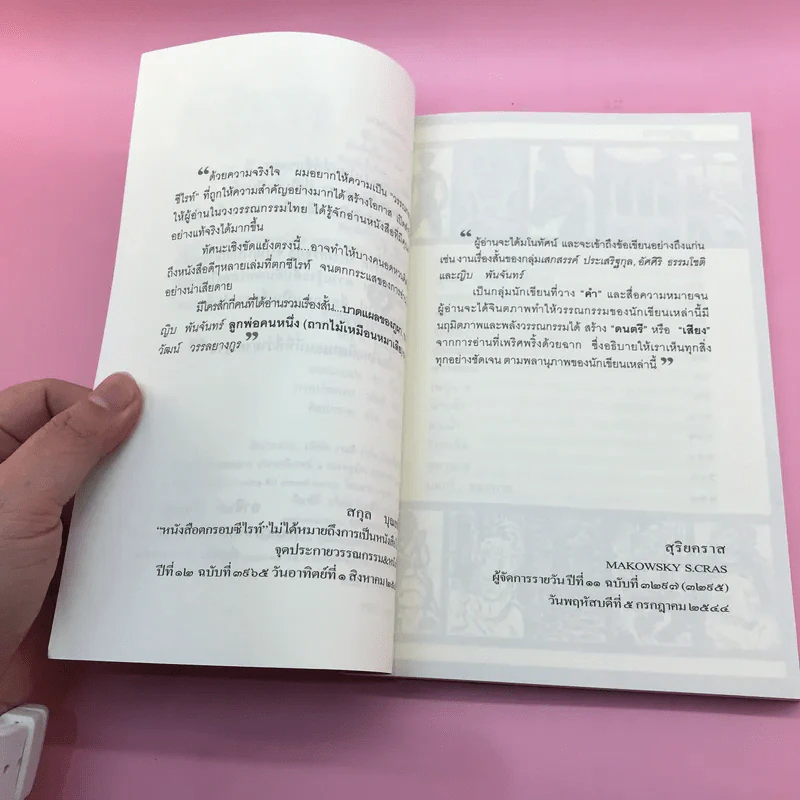 “ด้วยความจริงใจ ผมอยากให้ความเป็น “วรรณ
ซีไรท์” ที่ถูกให้ความสำคัญอย่างมากได้ สร้างโอกาส
ให้ผู้อ่านในวงวรรณกรรมไทย ได้รู้จักอ่านหนังสือที่
อย่างแท้จริงได้มากขึ้น
ทัศนะเชิงขัดแย้งตรงนี้...อาจทำให้บางคน
ถึงหนังสือดีๆหลายเล่มที่ตกซีไรท์ จนตกกระแสของการ
อย่างน่าเสียดาย
มีใครสักกี่คนที่ได้อ่านรวมเรื่องสั้น...บาดแผลของ
ญิบ พันจันทร์ ลูกพ่อคนหนึ่ง (ถากไม้เหมือนหมาเลีย)
วัฒน์ วรรลยางกูร ”
สกุล บุณย
“หนังสือตกรอบซีไรท์” ไม่ได้หมายถึงการเป็นหนังสือ
จุดประกายวรรณกรรม
ปีที่ ๑๒ ฉบับที่ ๓๙๖๕ วันอาทิตย์ที่ ๑ สิงหาคม
“ ผู้อ่านจะได้มโนทัศน์ และจะเข้าถึงข้อเขียนอย่างถึงแก่น
เช่น งานเรื่องสั้นของกลุ่มเสกสรรค์ ประเสริฐกุล, อัศศิริ ธรรมโชติ
และญิบ พันจันทร์
เป็นกลุ่มนักเขียนที่วาง “คำ” และสื่อความหมายจน
ผู้อ่านจะได้จินตภาพทำให้วรรณกรรมของนักเขียนเหล่านี้มี
นฤมิตภาพและพลังวรรณกรรมได้ สร้าง “ดนตรี” หรือ “เสียง”
จากการอ่านที่เพริศพริ้งด้วยฉาก ซึ่งอธิบายให้เราเห็นทุกสิ่ง
ทุกอย่างชัดเจน ตามพลานุภาพของนักเขียนเหล่านี้ ”
สุริยคราส
MAKOWSKY S.CRAS
ผู้จัดการรายวัน ปีที่ ๑๑ ฉบับที่ ๓๒๙๗ (๓๒๙๕)
วันพฤหัสบดีที่ ๕ กรกฎาคม ๒๕๔๔